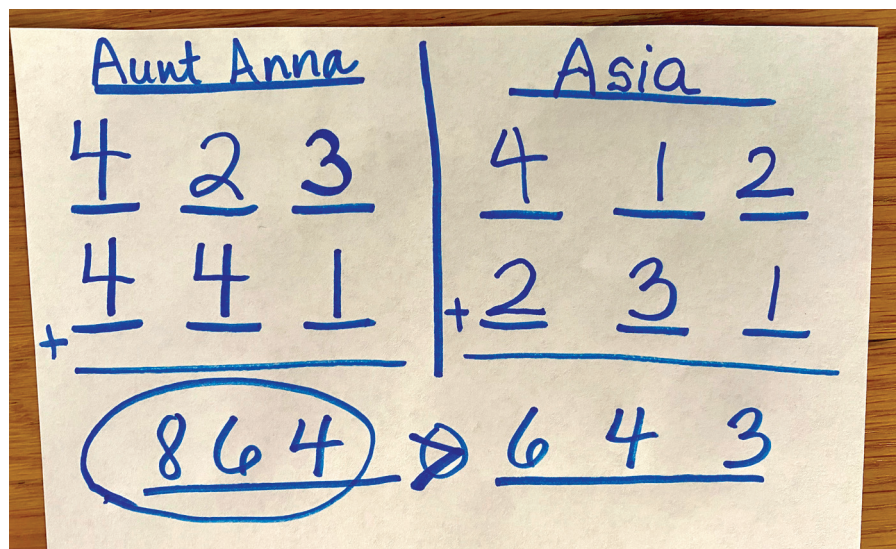 Aunt Anna
4 2 3
+ 4 4 1
864 >
Asia
4 1 2
+ 2 3 1
6 4 3